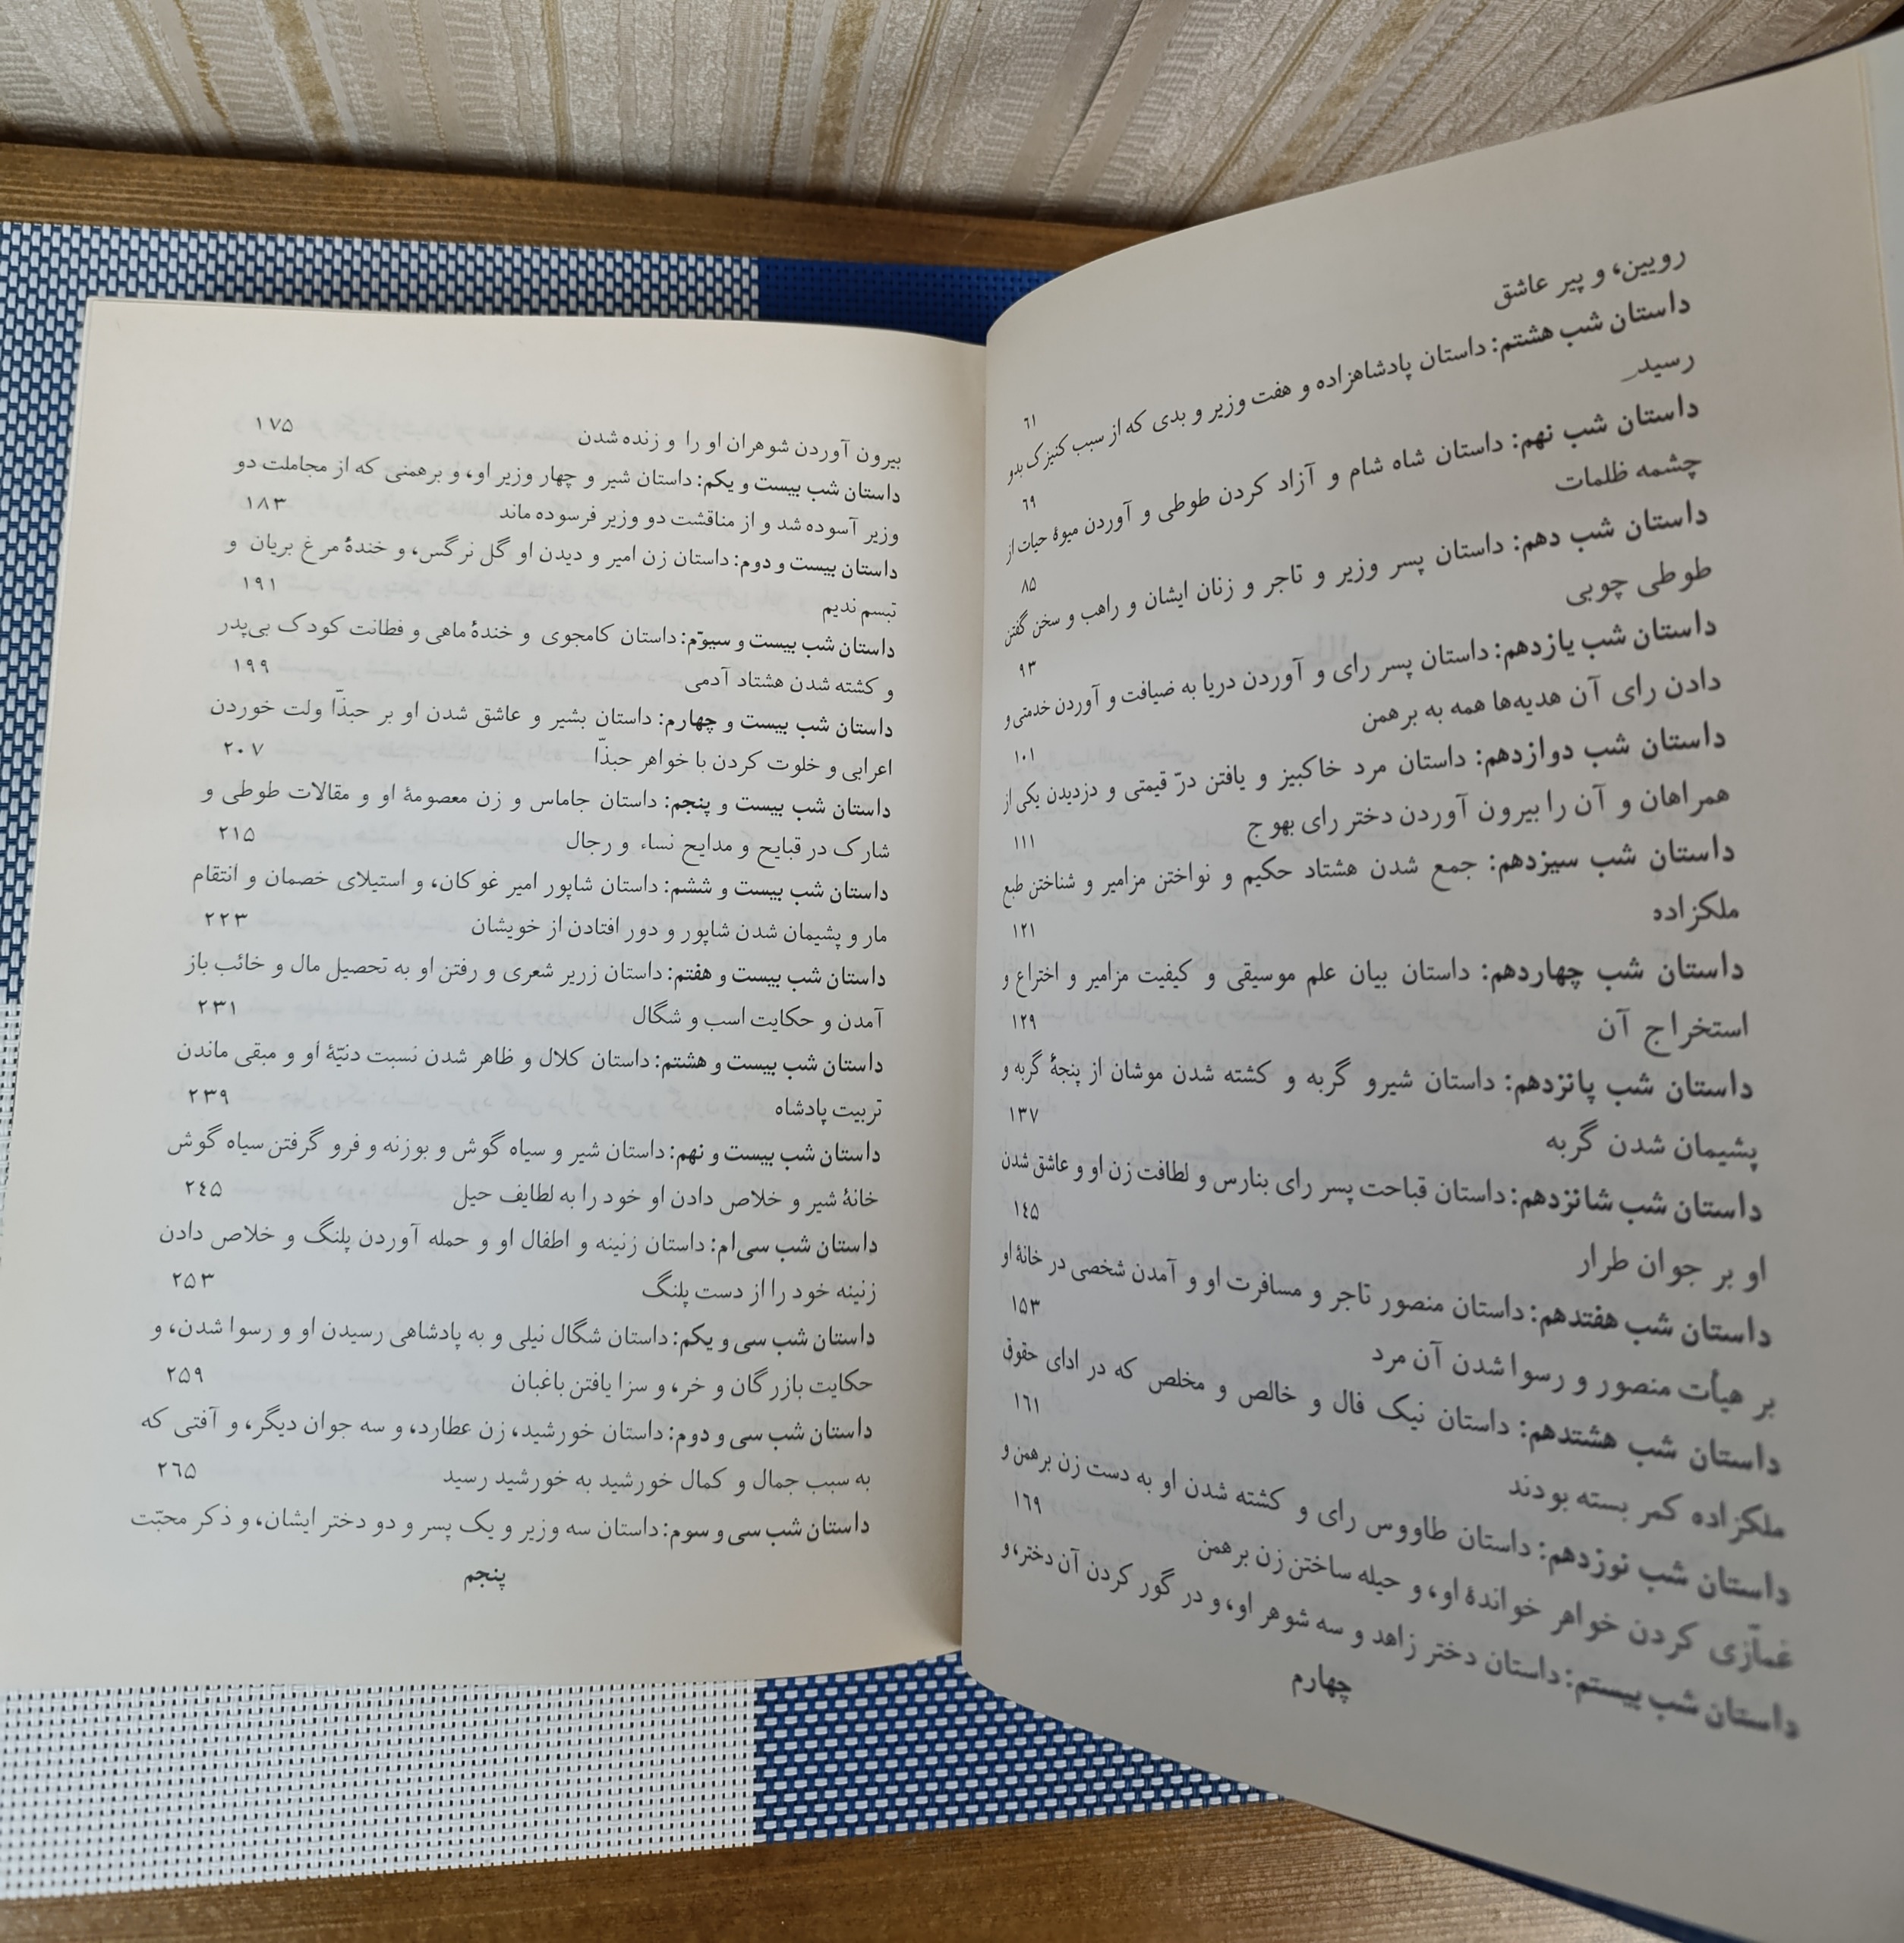 رویین، و پیر عاشق ٦١
داستان شب هشتم: داستان پادشاهزاده و هفت وزیر و بدی که از سبب کنیزک بدو
رسید ٦٩
داستان شب نهم: داستان شاه شام و آزاد کردن طوطی و آوردن میوهٔ حیات از
چشمه ظلمات ۸۵
داستان شب دهم: داستان پسر وزیر و تاجر و زنان ایشان و راهب و سخن گفتن
طوطی چوبی ۹۳
داستان شب یازدهم: داستان پسر رای و آوردن دریا به ضیافت و آوردن خدمتی و
دادن رای آن هدیه‌ها همه به برهمن ۱۰۱
داستان شب دوازدهم: داستان مرد خاکبیز و یافتن درّ قیمتی و دزدیدن یکی از
همراهان و آن را بیرون آوردن دختر رای بهوج ۱۱۱
داستان شب سیزدهم: جمع شدن هشتاد حکیم و نواختن مزامیر و شناختن طبع
ملکزاده ۱۲۱
داستان شب چهاردهم: داستان بیان علم موسیقی و کیفیت مزامیر و اختراع و
استخراج آن ۱۲۹
داستان شب پانزدهم: داستان شیرو گربه و کشته شدن موشان از پنجهٔ گربه و
پشیمان شدن گربه ۱۳۷
داستان شب شانزدهم: داستان قباحت پسر رای بنارس و لطافت زن او و عاشق شدن
او بر جوان طرار ۱٤۵
داستان شب هفتدهم: داستان منصور تاجر و مسافرت او و آمدن شخصی در خانهٔ او
بر هیأت منصور و رسوا شدن آن مرد ۱۵۳
داستان شب هشتدهم: داستان نیک فال و خالص و مخلص که در ادای حقوق
ملکزاده کمر بسته بودند ۱٦۱
داستان شب نوزدهم: داستان طاووس رای و کشته شدن او به دست زن برهمن و
غمّازی کردن خواهر خواندهٔ او، و حیله ساختن زن برهمن ۱٦۹
داستان شب بیستم: داستان دختر زاهد و سه شوهر او، و در گور کردن آن دختر، و
چهارم
بیرون آوردن شوهران او را و زنده شدن ۱۷۵
داستان شب بیست و یکم: داستان شیر و چهار وزیر او، و برهمنی که از مجاملت دو
وزیر آسوده شد و از مناقشت دو وزیر فرسوده ماند ۱۸۳
داستان بیست و دوم: داستان زن امیر و دیدن او گل نرگس، و خندهٔ مرغ بریان و
تبسم ندیم ۱۹۱
داستان شب بیست و سیوّم: داستان کامجوی و خندهٔ ماهی و فطانت کودک بی‌پدر
و کشته شدن هشتاد آدمی ۱۹۹
داستان شب بیست و چهارم: داستان بشیر و عاشق شدن او بر حبذّا ولت خوردن
اعرابی و خلوت کردن با خواهر حبذّا ۲۰۷
داستان شب بیست و پنجم: داستان جاماس و زن معصومهٔ او و مقالات طوطی و
شارک در قبایح و مدایح نساء و رجال ۲۱۵
داستان شب بیست و ششم: داستان شاپور امیر غوکان، و استیلای خصمان و انتقام
مار و پشیمان شدن شاپور و دور افتادن از خویشان ۲۲۳
داستان شب بیست و هفتم: داستان زریر شعری و رفتن او به تحصیل مال و خائب باز
آمدن و حکایت اسب و شگال ۲۳۱
داستان شب بیست و هشتم: داستان کلال و ظاهر شدن نسبت دنیّهٔ او و مبقی ماندن
تربیت پادشاه ۲۳۹
داستان شب بیست و نهم: داستان شیر و سیاه گوش و بوزنه و فرو گرفتن سیاه گوش
خانهٔ شیر و خلاص دادن او خود را به لطایف حیل ۲٤۵
داستان شب سی‌ام: داستان زنینه و اطفال او و حمله آوردن پلنگ و خلاص دادن
زنینه خود را از دست پلنگ ۲۵۳
داستان شب سی و یکم: داستان شگال نیلی و به پادشاهی رسیدن او و رسوا شدن، و
حکایت بازرگان و خر، و سزا یافتن باغبان ۲۵۹
داستان شب سی و دوم: داستان خورشید، زن عطارد، و سه جوان دیگر، و آفتی که
به سبب جمال و کمال خورشید به خورشید رسید ۲٦۵
داستان شب سی و سوم: داستان سه وزیر و یک پسر و دو دختر ایشان، و ذکر محبّت
پنجم